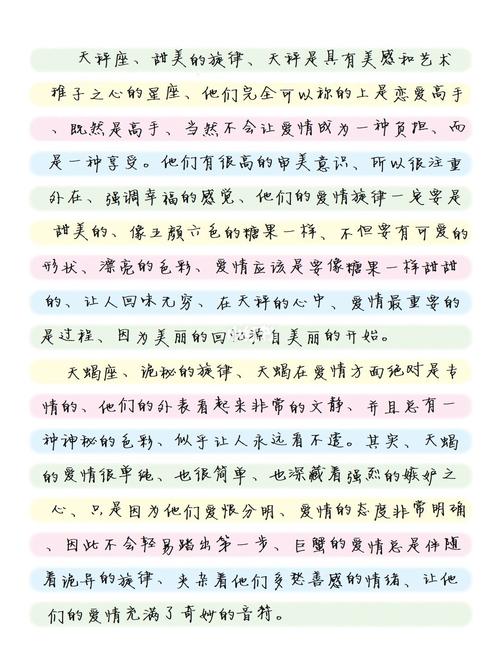 天秤座、甜美的旋律、天秤是具有美感和艺术
稚子之心的星座、他们完全可以称的上是恋爱高手
、既然是高手、当然不会让爱情成为一种负担、而
是一种享受。他们有很高的审美意识、所以很注重
外在、强调幸福的感觉、他们的爱情旋律一定要是
甜美的、像五颜六色的糖果一样、不但要有可爱的
形状、漂亮的色彩、爱情应该是要像糖果一样甜甜
的、让人回味无穷、在天秤的心中、爱情最重要的
是过程、因为美丽的回忆来自美丽的开始。
天蝎座、诡秘的旋律、天蝎在爱情方面绝对是专
情的、他们的外表看起来非常的文静、并且总有一
种神秘的色彩、似乎让人永远看不透。其实、天蝎
的爱情很单纯、也很简单、也深藏着强烈的嫉妒之
心、只是因为他们爱恨分明、爱情的态度非常明确
、因此不会轻易踏出第一步、巨蟹的爱情总是伴随
着诡异的旋律、夹杂着他们多愁善感的情绪、让他
们的爱情充满了奇妙的音符。